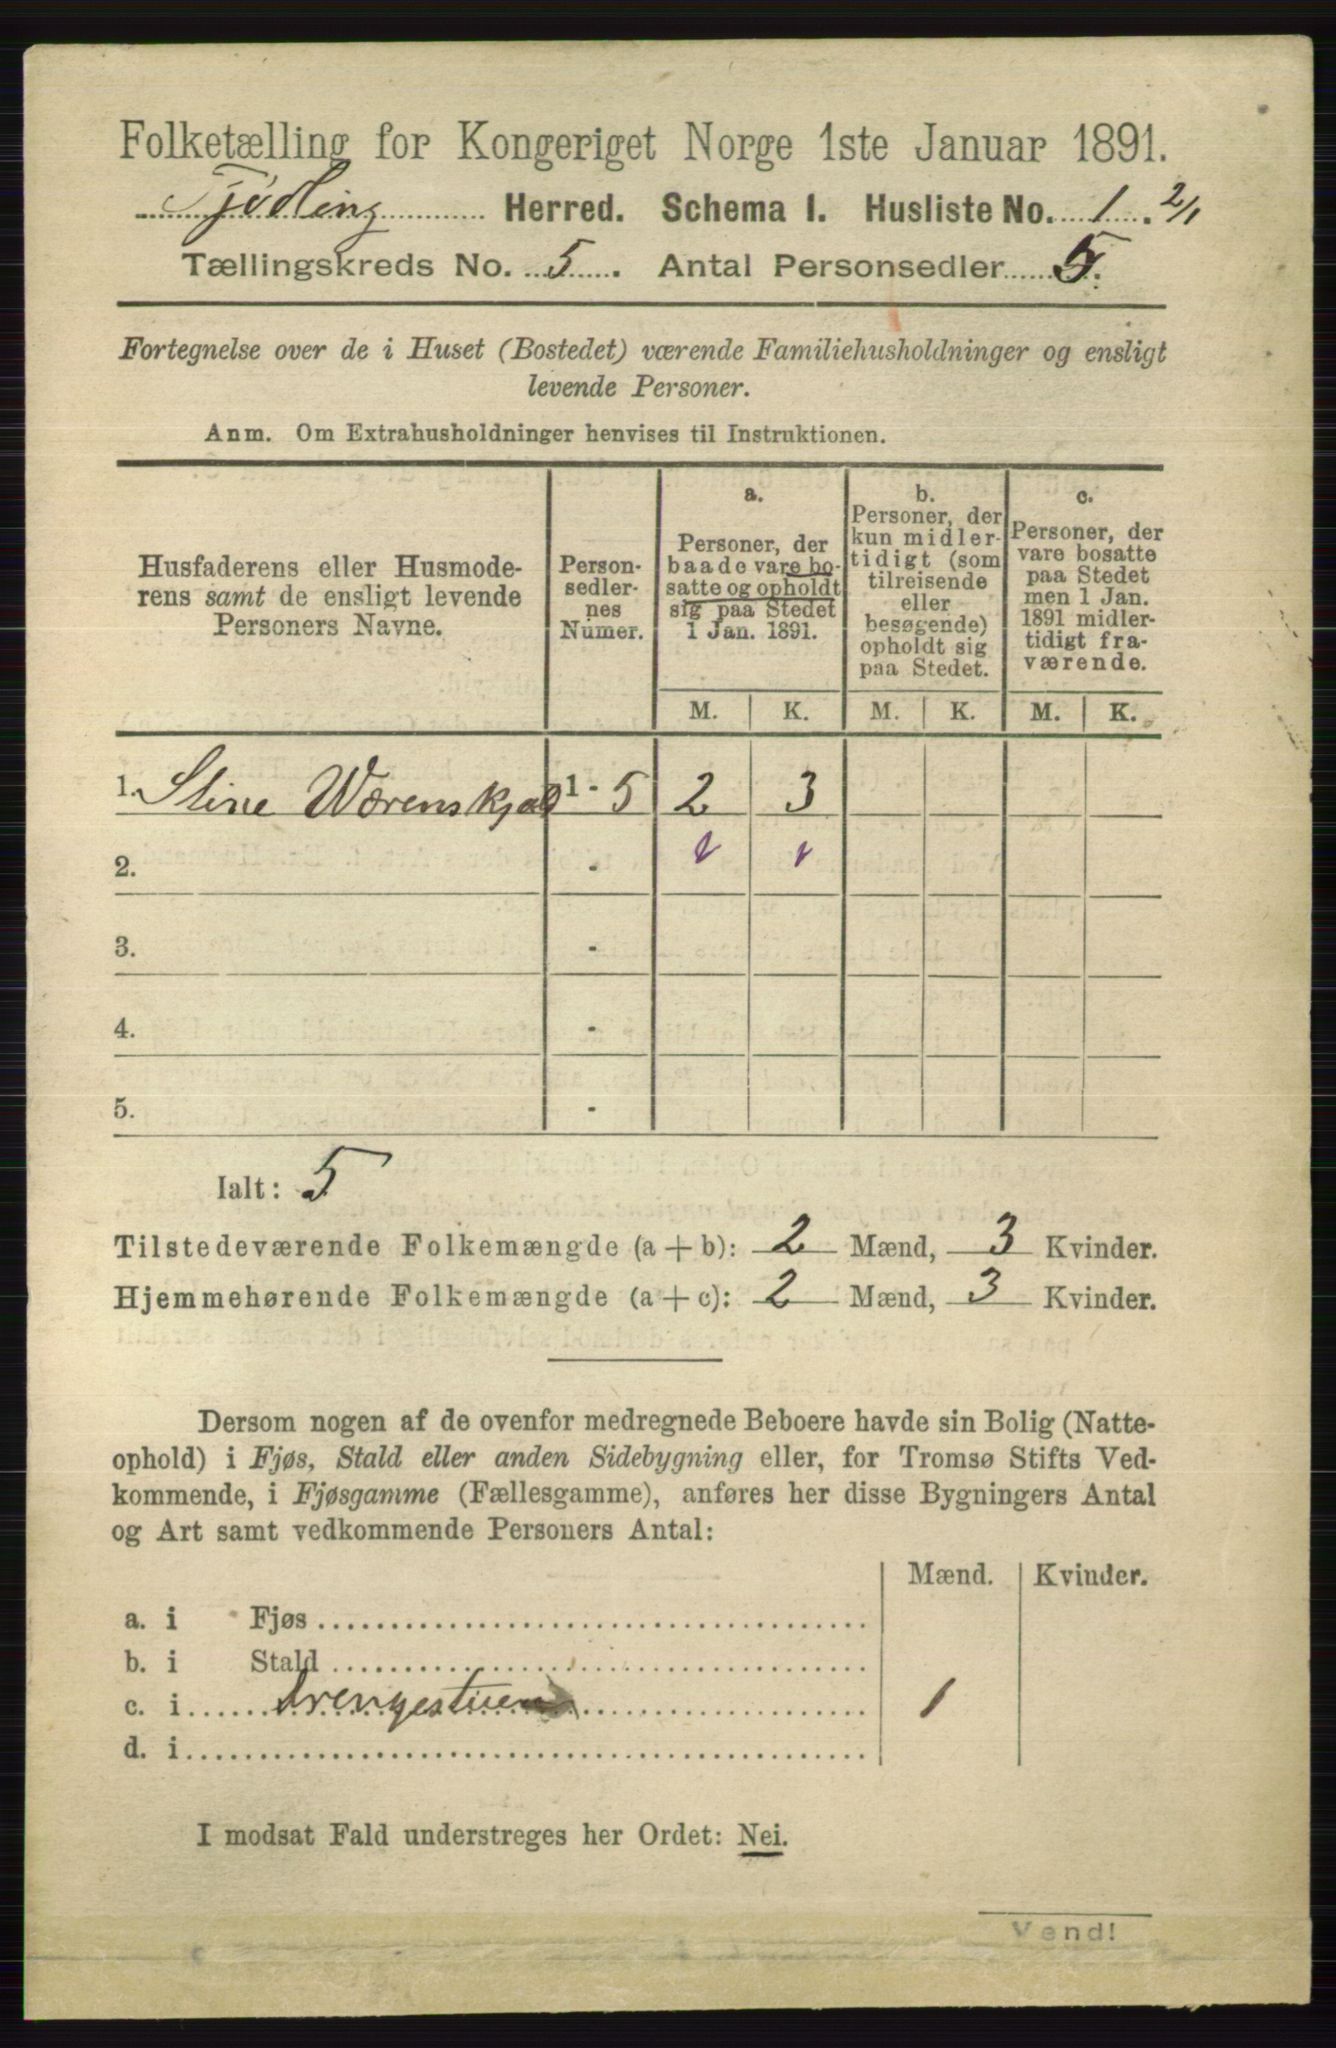 Folketælling for Kongeriget Norge 1ste Januar 1891.
Tjødling Herred. Schema I. Husliste No. 1. 2/1
Tællingskreds No. 5. Antal Personsedler 5.
Fortegnelse over de i Huset (Bostedet) værende Familiehusholdninger og ensligt
levende Personer.
Anm. Om Extrahusholdninger henvises til Instruktionen.
Husfaderens eller Husmode-
rens samt de ensligt levende
Personers Navne.
Person-
sedler-
nes
Numer.
a.
Personer, der
baade vare bo-
satte og opholdt
sig paa Stedet
1 Jan. 1891.
b.
Personer, der
kun midler-
tidigt (som
tilreisende
eller
besøgende)
opholdt sig
paa Stedet.
c.
Personer, der
vare bosatte
paa Stedet
men 1 Jan.
1891 midler-
tidigt fra-
værende.
M. K. M. K. M. K.
1. Stine Wærenskjold 1 - 5 2 3
2. -
3. -
4. -
5. -
Ialt: 5
Tilstedeværende Folkemængde (a + b): 2 Mænd, 3 Kvinder.
Hjemmehørende Folkemængde (a + c): 2 Mænd, 3 Kvinder.
Dersom nogen af de ovenfor medregnede Beboere havde sin Bolig (Natte-
ophold) i Fjøs, Stald eller anden Sidebygning eller, for Tromsø Stifts Ved-
kommende, i Fjøsgamme (Fællesgamme), anføres her disse Bygningers Antal
og Art samt vedkommende Personers Antal:
Mænd. Kvinder.
a. i Fjøs
b. i Stald
c. i Drengestuen 1
d. i
I modsat Fald understreges her Ordet: Nei.
Vend!